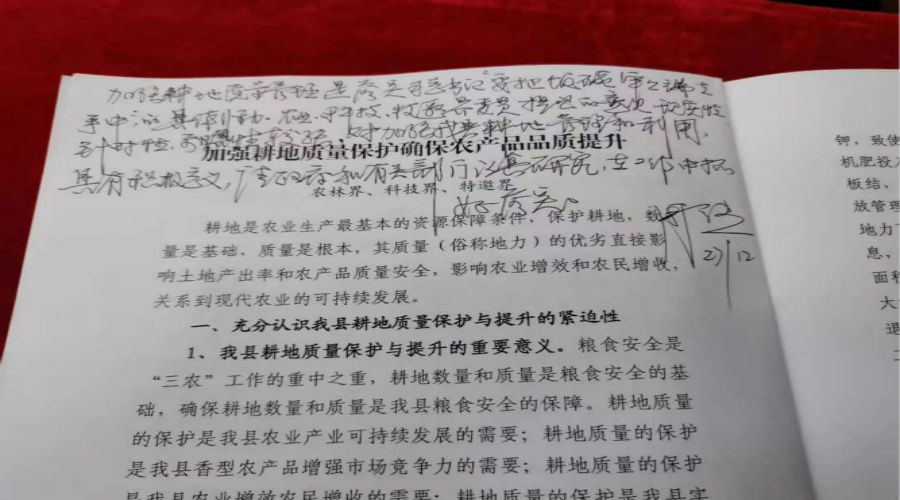 加强耕地质量管理是落实习总书记"要把饭碗牢牢端在
手中"的具体行动。农、科技、特邀界委员提出的意见
针对性、可操作性较强,对加强我县耕地管理和利用,
加强耕地质量保护确保农产品品质提升
具有积极意义,请政府和有关部门认真研究,在工作中抓
农林界、科技界、特邀界
好落实。
耕地是农业生产最基本的资源保障条件,保护耕地,数
27/12
量是基础,质量是根本,其质量(俗称地力)的优劣直接影
响土地产出率和农产品质量安全,影响农业增效和农民增收,
关系到现代农业的可持续发展。
一、充分认识我县耕地质量保护与提升的紧迫性
1、我县耕地质量保护与提升的重要意义。粮食安全是
"三农"工作的重中之重,耕地数量和质量是粮食安全的基
础,确保耕地数量和质量是我县粮食安全的保障。耕地质量
的保护是我县农业产业可持续发展的需要;耕地质量的保护
是我县香型农产品增强市场竞争力的需要;耕地质量的保护
是我县农业增效农民增收的需要;耕地质量的保护是我县实
钾,致使
机肥投入
板结,
放管理
地力下
息,
面积
大
退